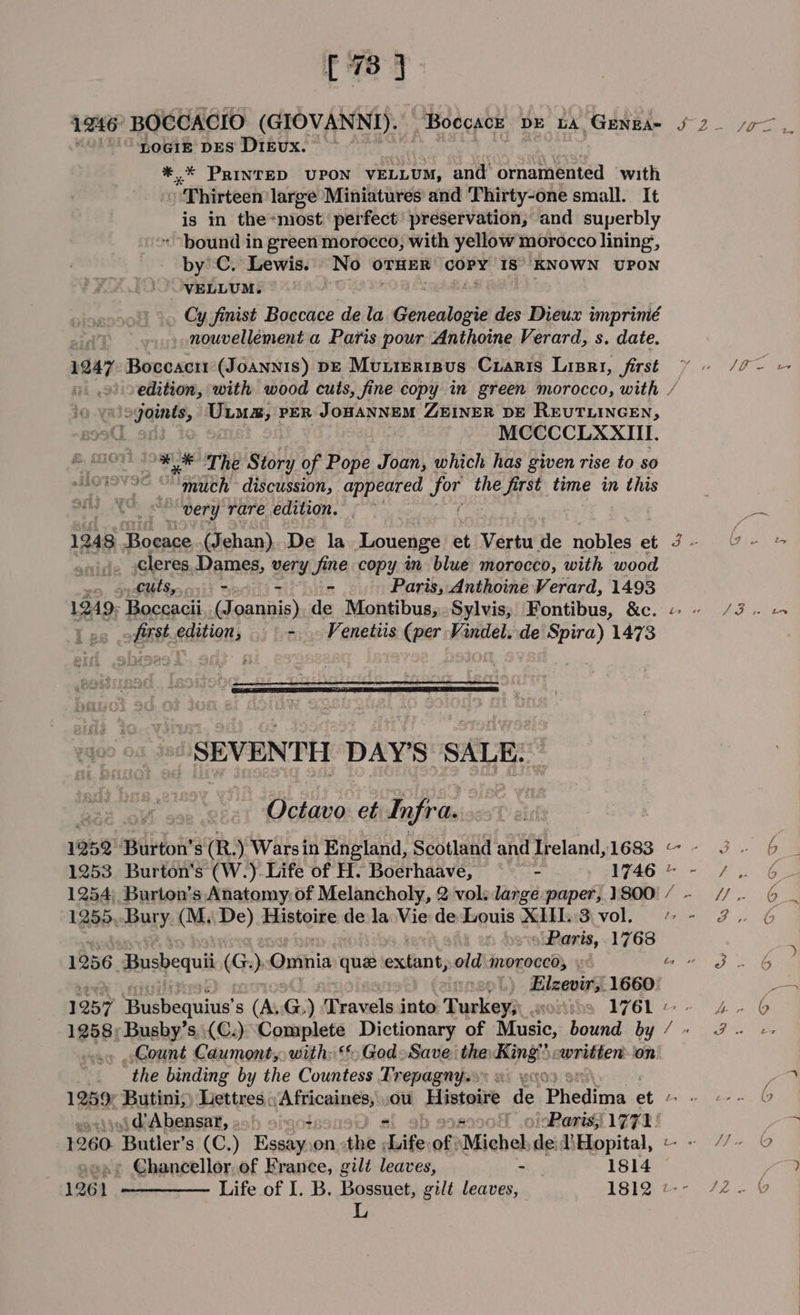 [ 73 ]
1246 BOCCACIO (GIOVANNI). Boccace de la Genea- 52 - 10 -
logie des Dieux.
*** Printed upon vellum, and ornamented with
Thirteen large Miniatures and Thirty-one small. It
is in the most perfect preservation, and superbly
bound in green morocco, with yellow morocco lining,
by C. Lewis. No other copy is known upon
vellum.
Cy finist Boccace de la Genealogie des Dieux imprimé
nouvellement a Paris pour Anthoine Verard, s. date.
1247 Boccacii (Joannis) de Mulieribus Claris Libri, first 7 - 10 -
edition, with wood cuts, fine copy in green morocco, with /
joints, Ulmæ, per Johannem Zeiner de Reutlingen,
MCCCCLXXIII.
*** The Story of Pope Joan, which has given rise to so
much discussion, appeared for the first time in this
very rare edition.
1248 Bocace (Jehan) De la Louenge et Vertu de nobles et 3 - 6 -
cleres Dames, very fine copy in blue morocco, with wood
cuts, - - - Paris, Anthoine Verard, 1493
1249 Boccacii (Joannis) de Montibus, Sylvis, Fontibus, &c. - 13 -
first edition, - Venetiis (per Vindel. de Spira) 1473
SEVENTH DAY'S SALE.
Octavo et Infra.
1252 Burton's (R.) Wars in England, Scotland and Ireland, 1683 - 3 - 6
1253 Burton's (W.) Life of H. Boerhaave, - 1746 - 1 - 6
1254 Burton's Anatomy of Melancholy, 2 vol. large paper, 1800 / - 11 - 6
1255 Bury (M. De) Histoire de la Vie de Louis XIII. 3 vol. - 3 - 6
Paris, 1768
1256 Busbequii (G.) Omnia quæ extant, old morocco, - 3 - 6
Elzevir, 1660
1257 Busbequius's (A. G.) Travels into Turkey, 1761 - 4 - 6
1258 Busby's (C.) Complete Dictionary of Music, bound by / - 3 -
Count Caumont, with "God Save the King" written on
the binding by the Countess Trepagny.
1259 Butini, Lettres Africaines, ou Histoire de Phedima et - - 6
d'Abensar, - Paris, 1771
1260 Butler's (C.) Essay on the Life of Michel de l'Hopital, - 11 - 6
Chancellor of France, gilt leaves, - 1814
1261 ——— Life of I. B. Bossuet, gilt leaves, 1812 - 12 - 6
L